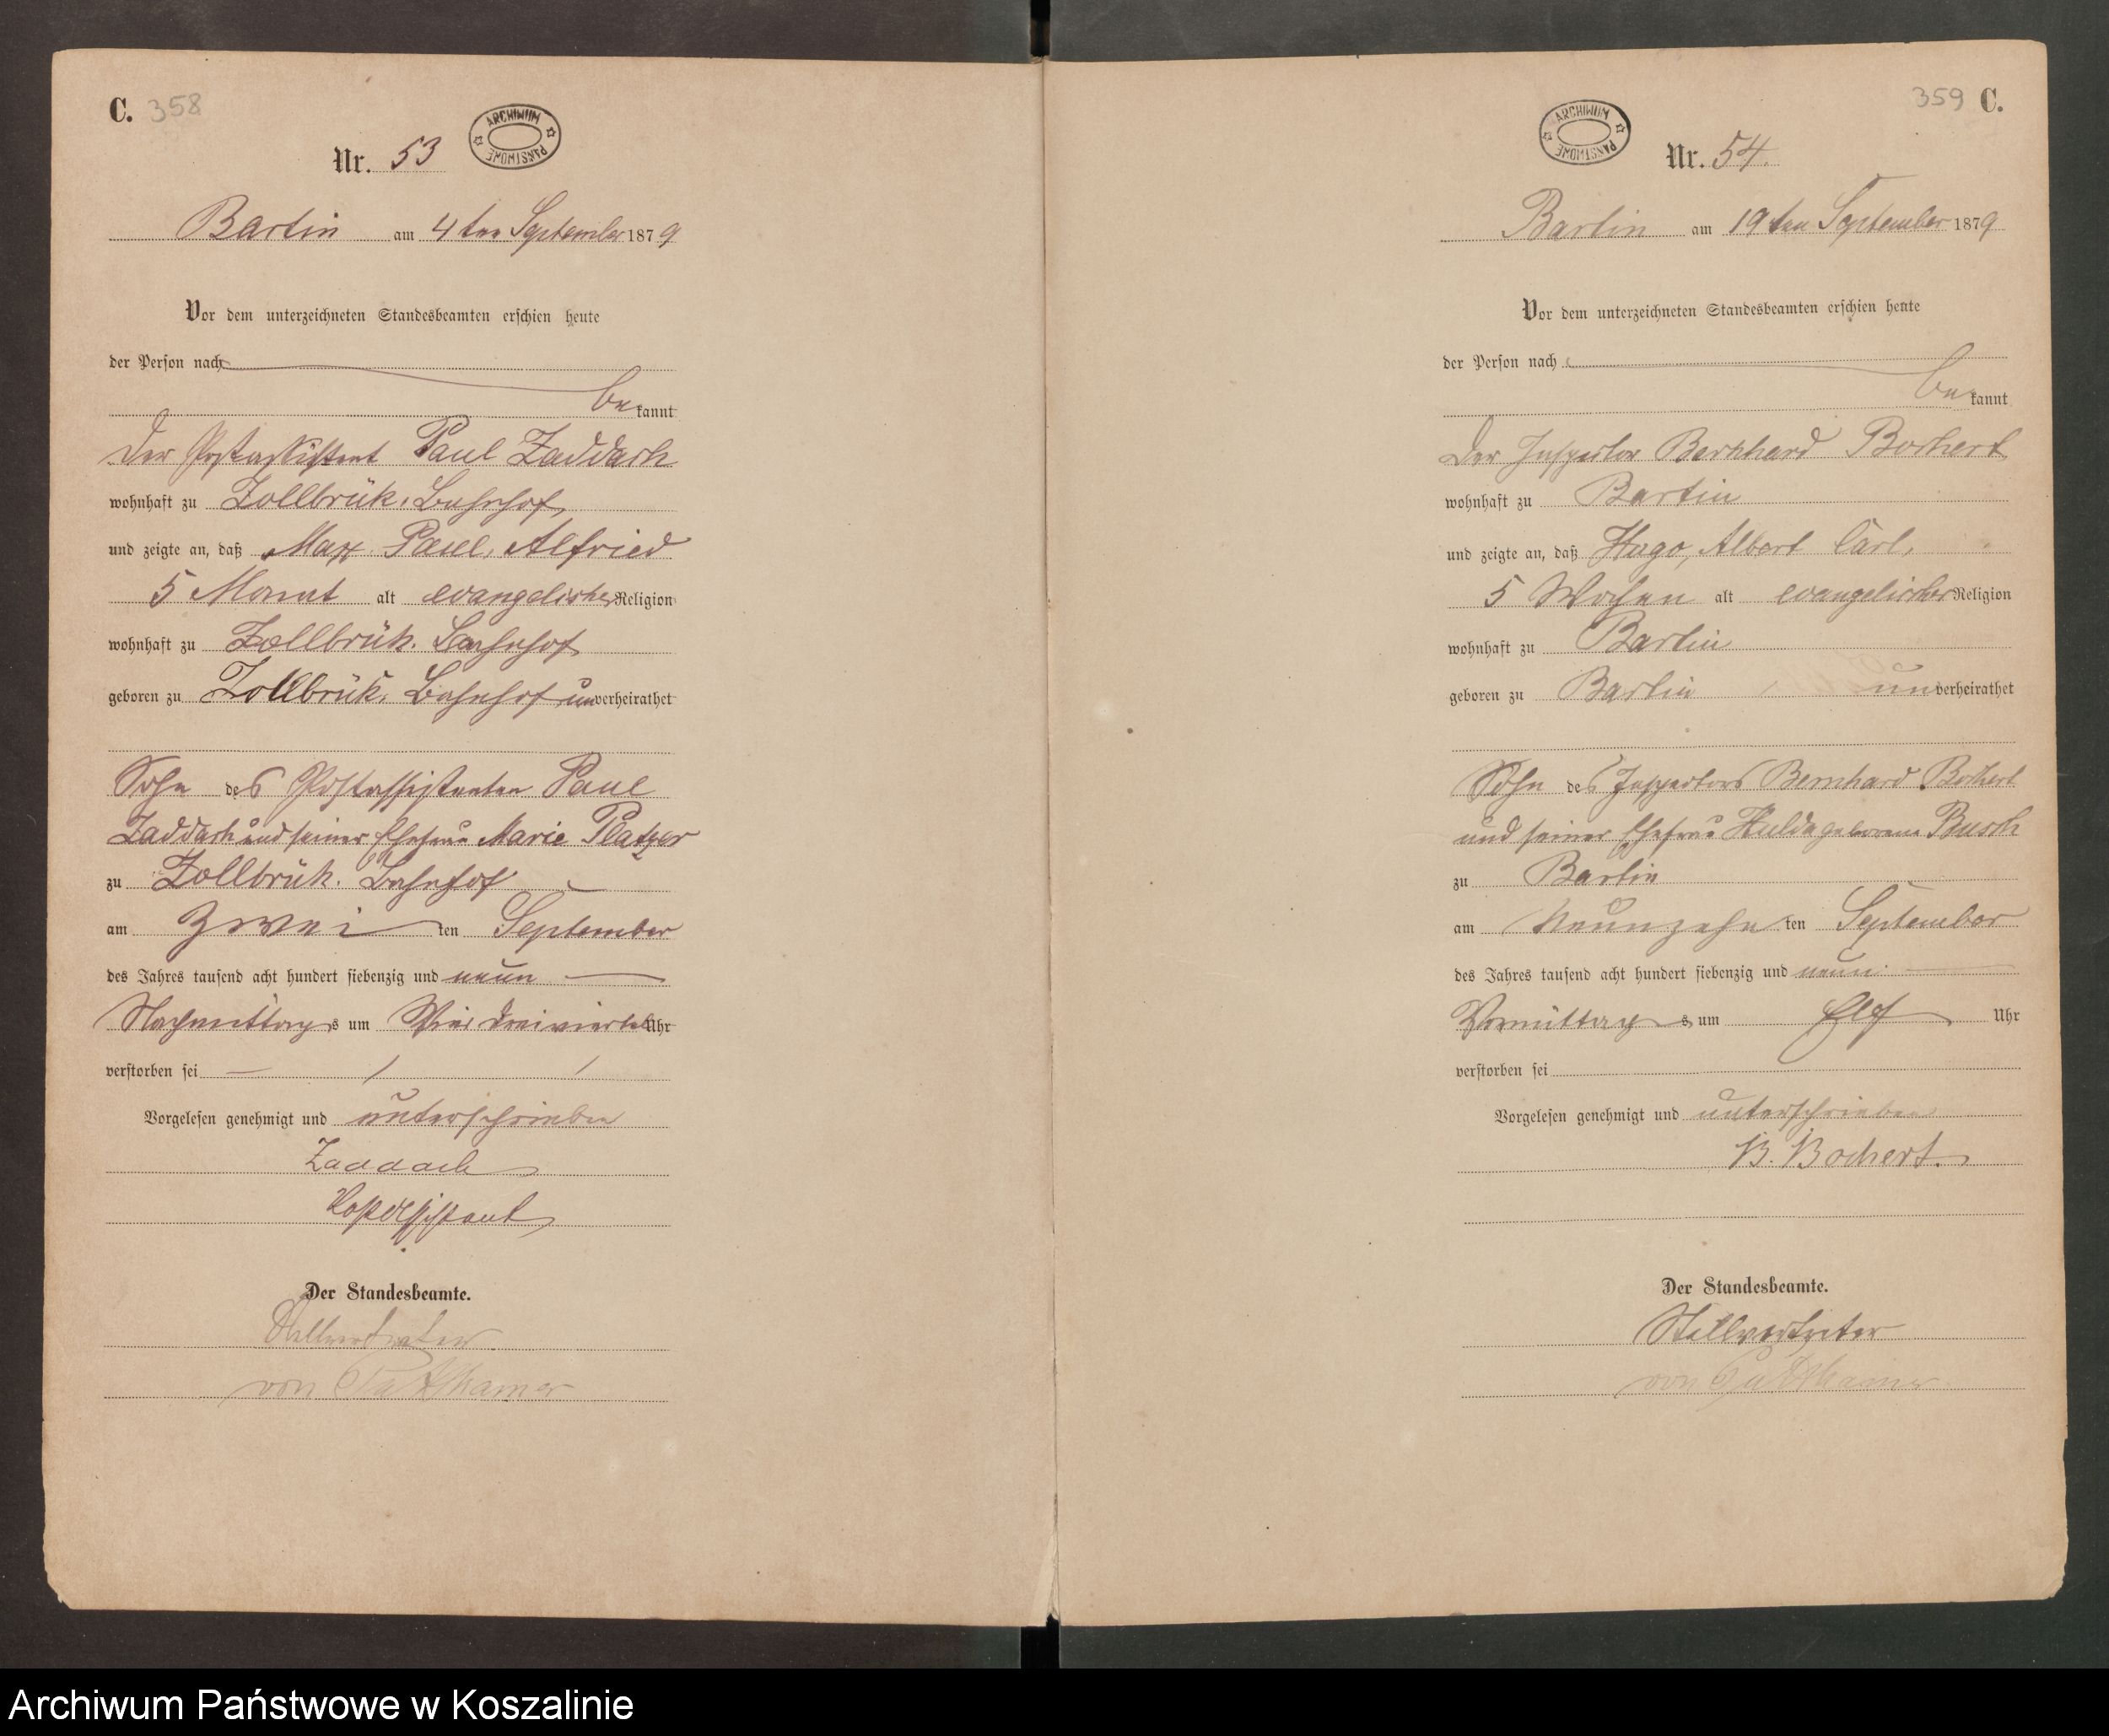 C. 358
ARCHIWUM PAŃSTWOWE
Nr. 53
Bartin am 4ten September 1879
Vor dem unterzeichneten Standesbeamten erschien heute
der Person nach
bekannt
der Postassistent Paul Zaddach
wohnhaft zu Zollbrük. Bahnhof,
und zeigte an, daß Max Paul, Alfried
5 Monat alt evangelischer Religion
wohnhaft zu Zollbrük. Bahnhof
geboren zu Zollbrük. Bahnhof unverheirathet
Sohn des Postassistenten Paul
Zaddach und seiner Ehefrau Marie Platzer
zu Zollbrük. Bahnhof
am Zwei ten September
des Jahres tausend acht hundert siebenzig und neun
Nachmittags um Vier dreiviertel Uhr
verstorben sei
Vorgelesen genehmigt und unterschrieben
Zaddach
Postassistent
Der Standesbeamte.
Stellvertreter
von Puttkamer
359 C.
ARCHIWUM PAŃSTWOWE
Nr. 54.
Bartin am 19ten September 1879
Vor dem unterzeichneten Standesbeamten erschien heute
der Person nach
bekannt
Der Inspector Bernhard Bochert
wohnhaft zu Bartin
und zeigte an, daß Hugo, Albert Carl,
5 Wochen alt evangelischer Religion
wohnhaft zu Bartin
geboren zu Bartin unverheirathet
Sohn des Inspectors Bernhard Bochert
und seiner Ehefrau Hulda geborene Busch
zu Bartin
am Neunzehn ten September
des Jahres tausend acht hundert siebenzig und neun
Vormittags um Elf Uhr
verstorben sei
Vorgelesen genehmigt und unterschrieben
B. Bochert.
Der Standesbeamte.
Stellvertreter
von Puttkamer
Archiwum Państwowe w Koszalinie